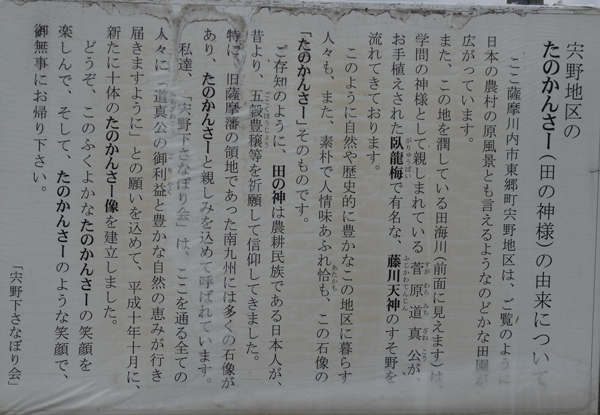 宍野地区の
たのかんさー（田の神様）の由来について
ここ薩摩川内市東郷町宍野地区は、ご覧のように
日本の農村の原風景とも言えるようなのどかな田園が
広がっています。
また、この地を潤している田海川（前面に見えます）は、
学問の神様として親しまれている菅原道真公が、
お手植えされた臥龍梅で有名な、藤川天神のすそ野を
流れてきております。
このように自然や歴史的に豊かなこの地区に暮らす
人々も、また、素朴で人情味あふれ恰も、この石像の
「たのかんさー」そのものです。
ご存知のように、田の神は農耕民族である日本人が、
昔より、五穀豊穣等を祈願して信仰してきました。
特に、旧薩摩藩の領地であった南九州には多くの石像が
あり、たのかんさーと親しみを込めて呼ばれています。
私達、「宍野下さなぼり会」は、ここを通る全ての
人々に「道真公の御利益と豊かな自然の恵みが行き
届きますように」との願いを込めて、平成十年十月に、
新たに十体のたのかんさー像を建立しました。
どうぞ、このふくよかなたのかんさーの笑顔を
楽しんで、そして、たのかんさーのような笑顔で、
御無事にお帰り下さい。
「宍野下さなぼり会」